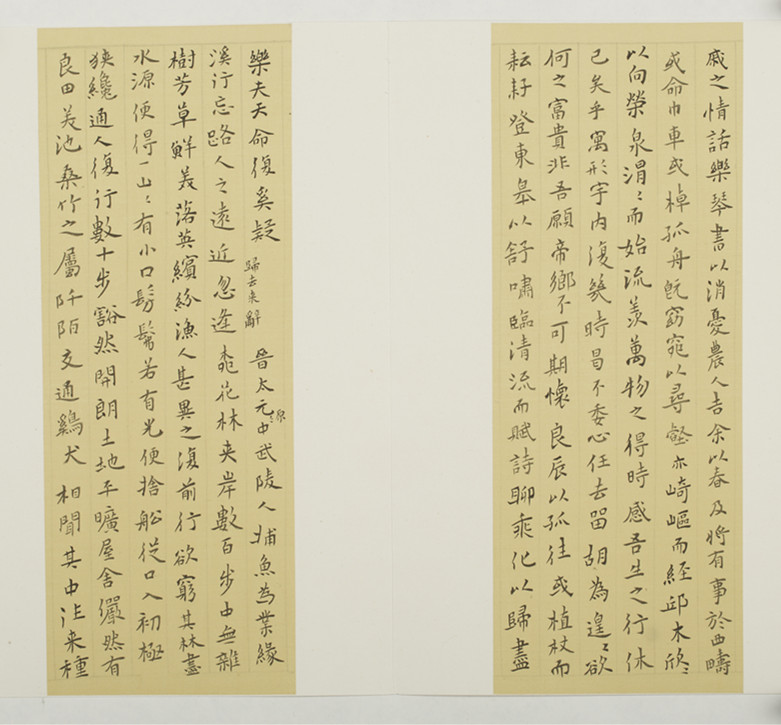 戚之情話樂琴書以消憂農人告余以春及將有事於西疇
或命巾車或棹孤舟既窈窕以尋壑亦崎嶇而經邱木欣〻
以向榮泉涓〻而始流羨萬物之得時感吾生之行休
已矣乎寓形宇内復幾時曷不委心任去留胡為遑〻欲
何之富貴非吾願帝鄉不可期懷良辰以孤往或植杖而
耘耔登東皋以舒嘯臨清流而賦詩聊乘化以歸盡
樂夫天命復奚疑 歸去来辭 晉太元中武陵人捕魚為業緣
溪行忘路人之遠近忽逢桃花林夾岸數百步中無雜
樹芳草鮮美落英繽紛漁人甚異之復前行欲窮其林盡
水源便得一山〻有小口髣髴若有光便捨船從口入初極
狹纔通人復行數十步豁然開朗土地平曠屋舍儼然有
良田美池桑竹之屬阡陌交通鷄犬相聞其中往来種